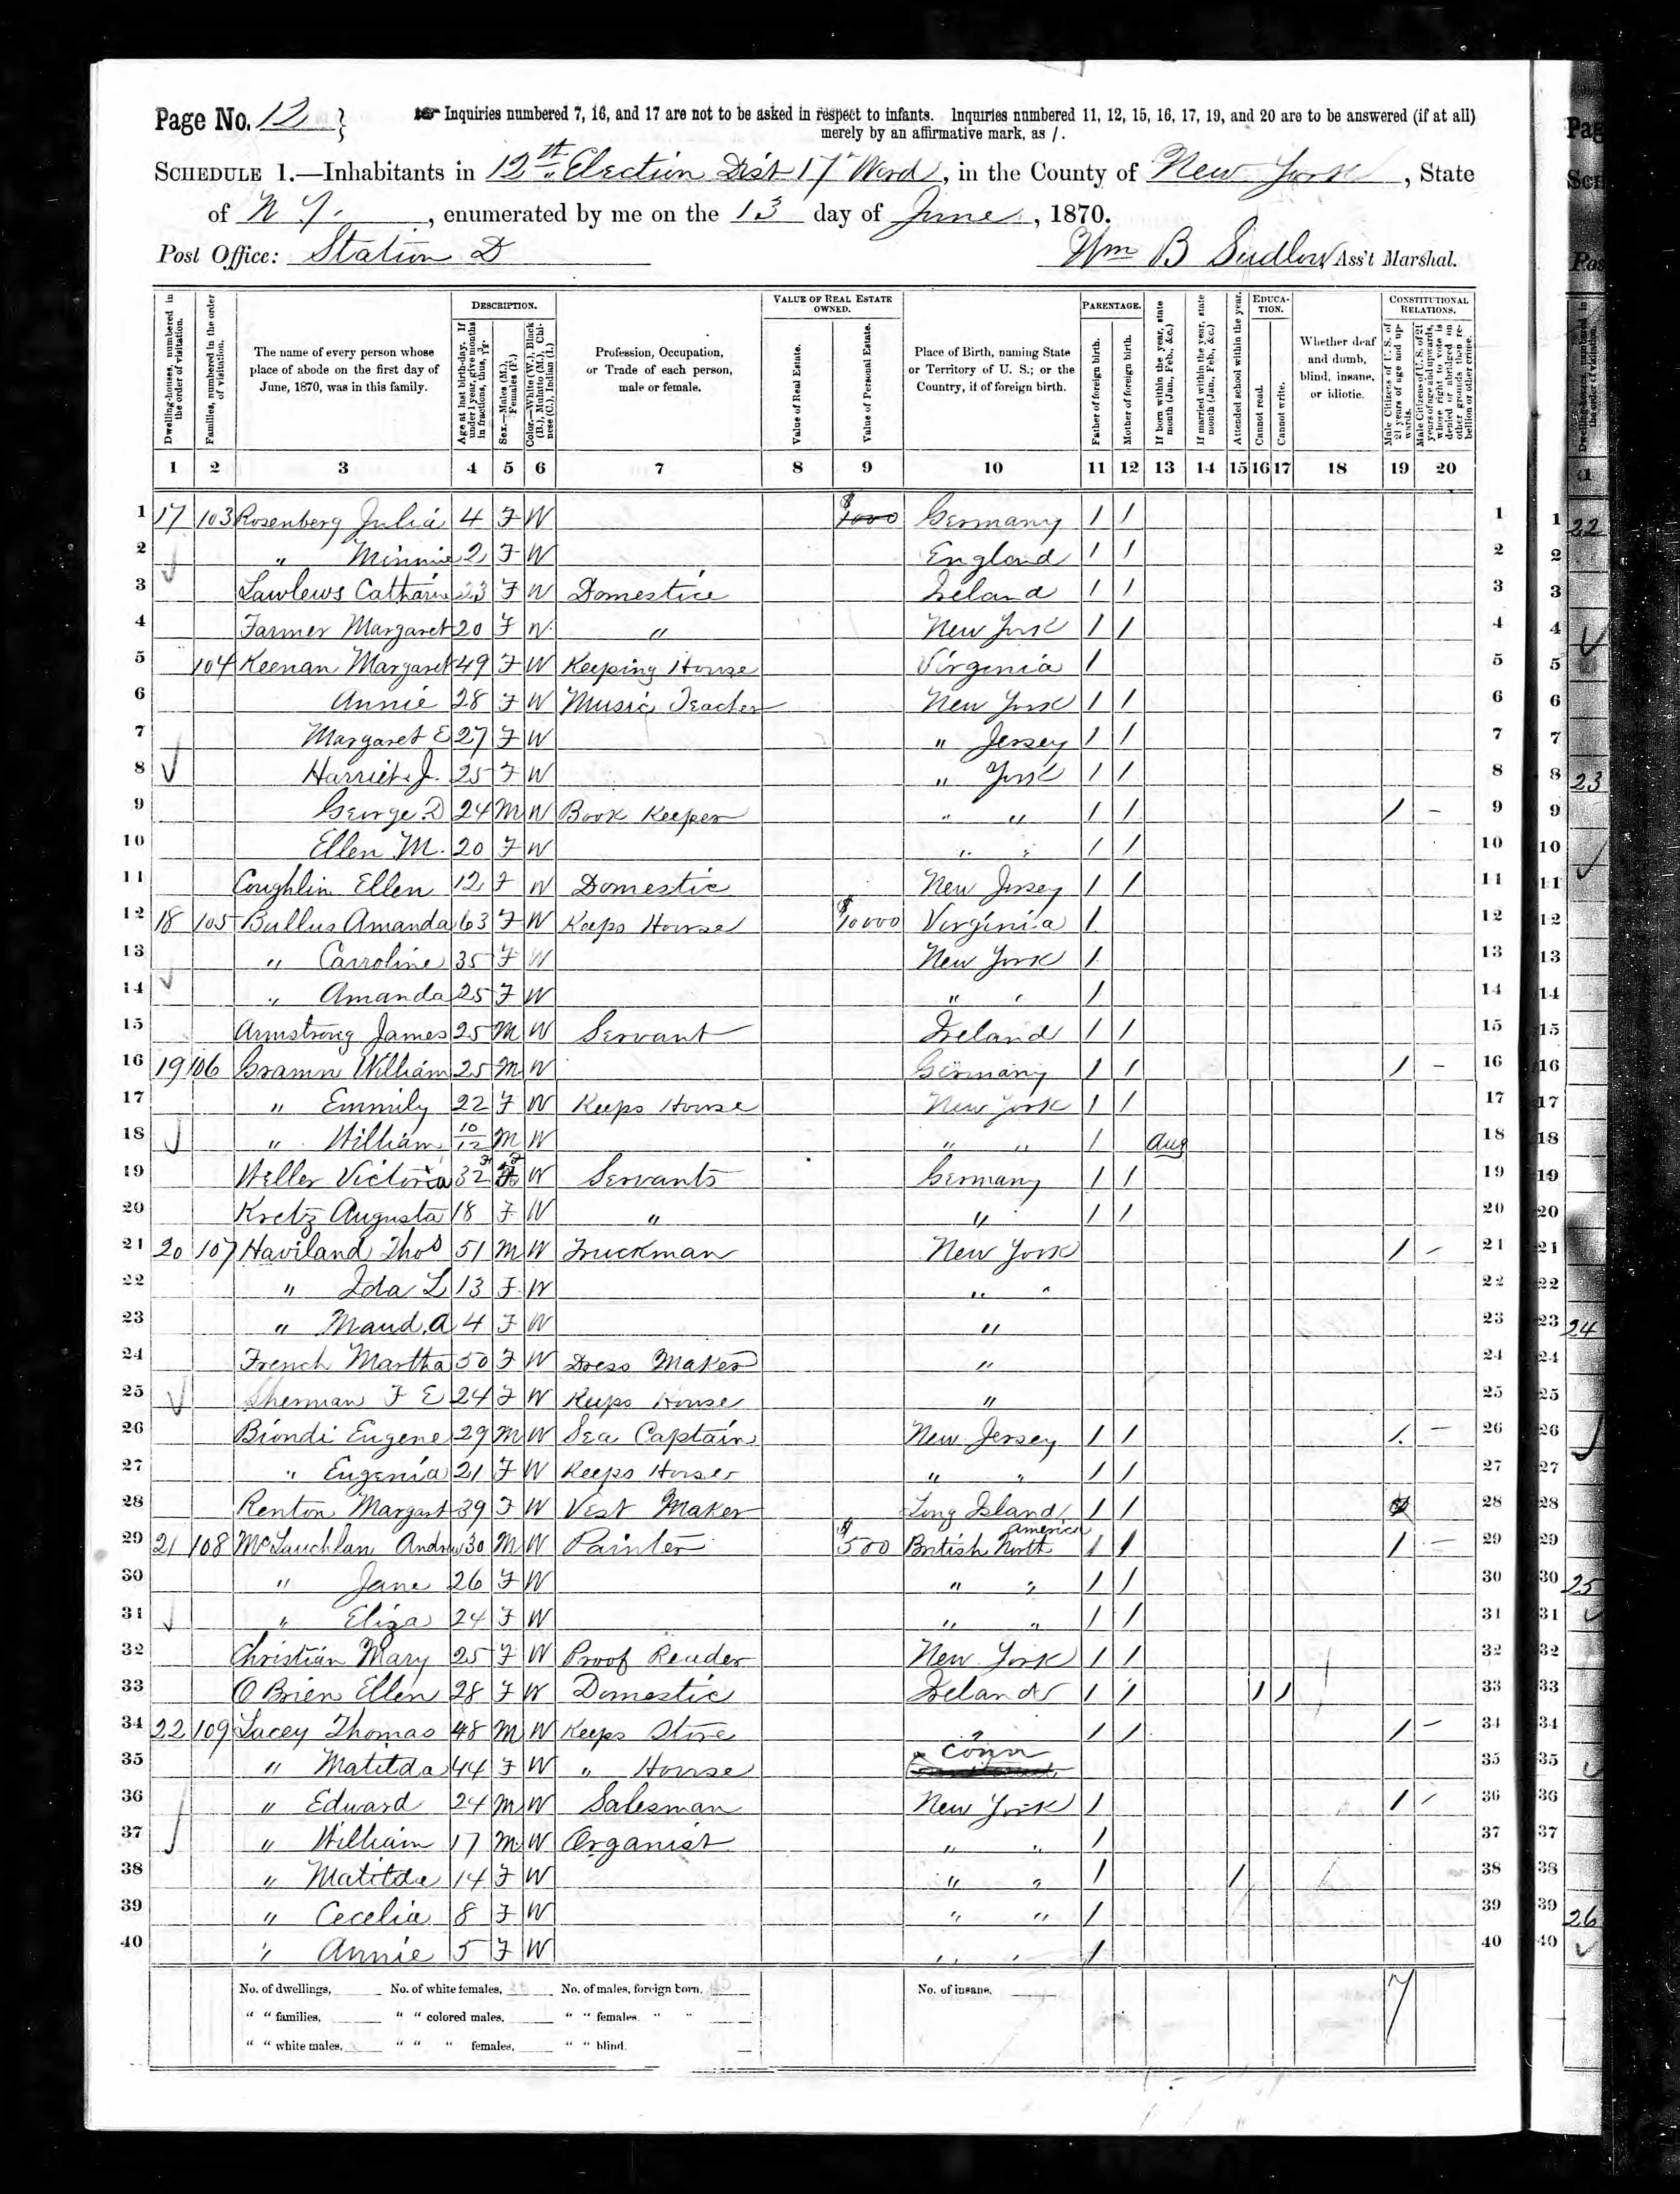 Page No. 12
Inquiries numbered 7, 16, and 17 are not to be asked in respect to infants. Inquiries numbered 11, 12, 15, 16, 17, 19, and 20 are to be answered (if at all)
merely by an affirmative mark, as /.
SCHEDULE 1.—Inhabitants in 12th Election Dist 17" Ward, in the County of New York, State
of N Y., enumerated by me on the 13 day of June, 1870.
Post Office: Station D Wm B Sudlow Ass't Marshal.
DESCRIPTION. VALUE OF REAL ESTATE OWNED. PARENTAGE. EDUCATION. CONSTITUTIONAL RELATIONS.
Dwelling-houses, numbered in the order of visitation.
Families, numbered in the order of visitation.
The name of every person whose place of abode on the first day of June, 1870, was in this family.
Age at last birth-day. If under 1 year, give months in fractions, thus, 3/12.
Sex.—Males (M.), Females (F.)
Color.—White (W.), Black (B.), Mulatto (M.), Chinese (C.), Indian (I.)
Profession, Occupation, or Trade of each person, male or female.
Value of Real Estate.
Value of Personal Estate.
Place of Birth, naming State or Territory of U. S.; or the Country, if of foreign birth.
Father of foreign birth.
Mother of foreign birth.
If born within the year, state month (Jan., Feb., &c.)
If married within the year, state month (Jan., Feb., &c.)
Attended school within the year.
Cannot read.
Cannot write.
Whether deaf and dumb, blind, insane, or idiotic.
Male Citizens of U. S. of 21 years of age and upwards.
Male Citizens of U. S. of 21 years of age and upwards, whose right to vote is denied or abridged on other grounds than rebellion or other crime.
1 2 3 4 5 6 7 8 9 10 11 12 13 14 15 16 17 18 19 20
1 17 103 Rosenberg Julia 4 F W $1000 Germany / / 1
2 " Minnie 2 F W England / / 2
3 Lawlews Catharine 23 F W Domestice Ireland / / 3
4 Farmer Margaret 20 F W " New York / / 4
5 104 Keenan Margaret 49 F W Keeping House Virginia / 5
6 Annie 28 F W Music Teacher New York / / 6
7 Margaret E 27 F W " Jersey / / 7
8 Harriet J. 25 F W " York / / 8
9 George D 24 M W Book Keeper " " / / / - 9
10 Ellen M. 20 F W " " / / 10
11 Coughlin Ellen 12 F W Domestic New Jersey / / 11
12 18 105 Bullus Amanda 63 F W Keeps House $10000 Virginia / 12
13 " Carroline 35 F W New York / 13
14 " Amanda 25 F W " " / 14
15 Armstrong James 25 M W Servant Ireland / / 15
16 19 106 Gramn William 25 M W Germany / / / - 16
17 " Emmily 22 F W Keeps House New York / / 17
18 " William 10/12 M W " " / Aug 18
19 Weller Victoria 32 F W Servants Germany / / 19
20 Kretz Augusta 18 F W " " / / 20
21 20 107 Haviland Thos 51 M W Truckman New York / - 21
22 " Ida L 13 F W " " 22
23 " Maud. A 4 F W " 23
24 French Martha 50 F W Dress Maker " 24
25 Sherman F E 24 F W Keeps House " 25
26 Biondi Eugene 29 M W Sea Captain New Jersey / / / - 26
27 " Eugenia 21 F W Keeps House " " / / 27
28 Renton Margart 39 F W Vest Maker Long Island / / 28
29 21 108 McLauchlan Andrew 30 M W Painter $500 British North America / / / - 29
30 " Jane 26 F W " " / / 30
31 " Eliza 24 F W " " / / 31
32 Christian Mary 25 F W Proof Reader New York / / 32
33 O Brien Ellen 28 F W Domestic Ireland / / / / 33
34 22 109 Lacey Thomas 48 M W Keeps Store " / / / - 34
35 " Matilda 44 F W " House Conn 35
36 " Edward 24 M W Salesman New York / / - 36
37 " William 17 M W Organist " " / 37
38 " Matilda 14 F W " " / / 38
39 " Cecelia 8 F W " " / 39
40 " Annie 5 F W " " / 40
No. of dwellings, No. of white females, No. of males, foreign born, No. of insane, 7
" " families, " " colored males, " " females, " "
" " white males, " " " females, " " blind.